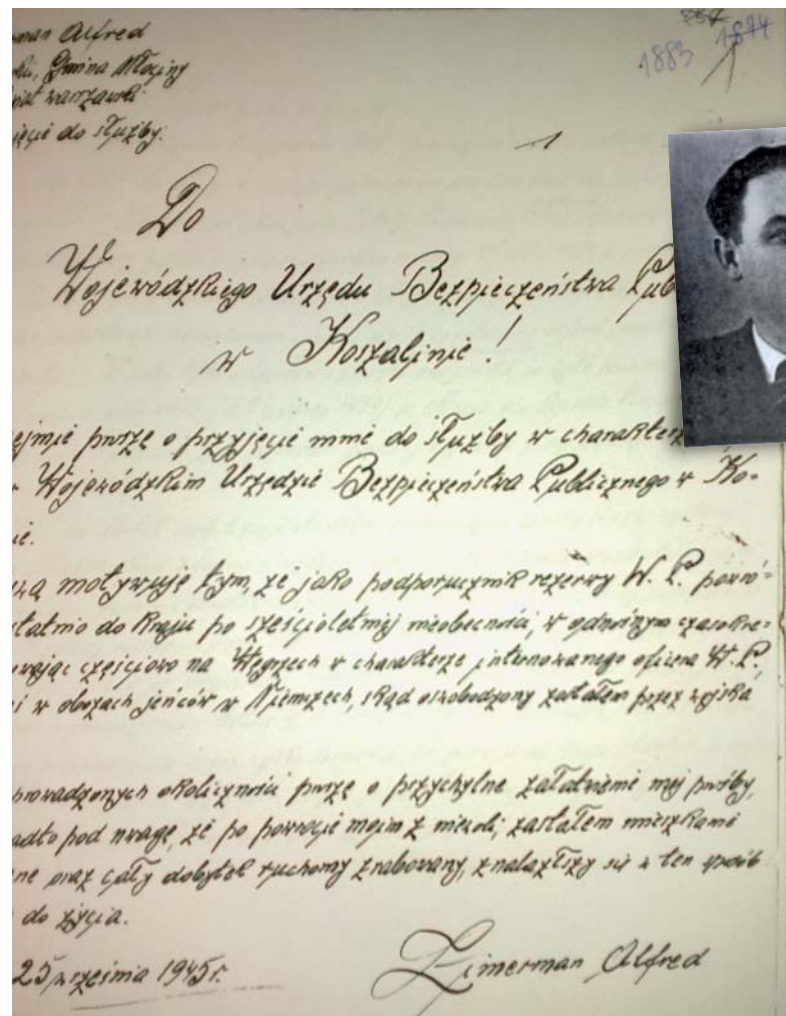 1883 1844
man Alfred
Gmina Młociny
warszawski
jęcie do służby.
Do
Wojewódzkiego Urzędu Bezpieczeństwa Pub
w Koszalinie!
ejmie proszę o przyjęcie mnie do służby w charakterz
Wojewódzkim Urzędzie Bezpieczeństwa Publicznego w Ko-
ie.
motywuję tym, że jako podporucznik rezerwy W. P. powró-
tatnio do kraju po sześcioletniej nieobecności, w odnośnym czasokre-
wając częściowo na Węgrzech w charakterze internowanego oficera W. P.,
i w obozach jeńców w Niemczech, skąd oswobodzony zostałem przez wojska
prowadzonych okoliczności proszę o przychylne załatwienie mej prośby,
adto pod uwagę, że po powrocie moim z niewoli, zastałem mieszkanie
ne oraz cały dobytek ruchomy zrabowany, znalazłszy się w ten sposób
do życia.
25 września 1945r.
Zimerman Alfred